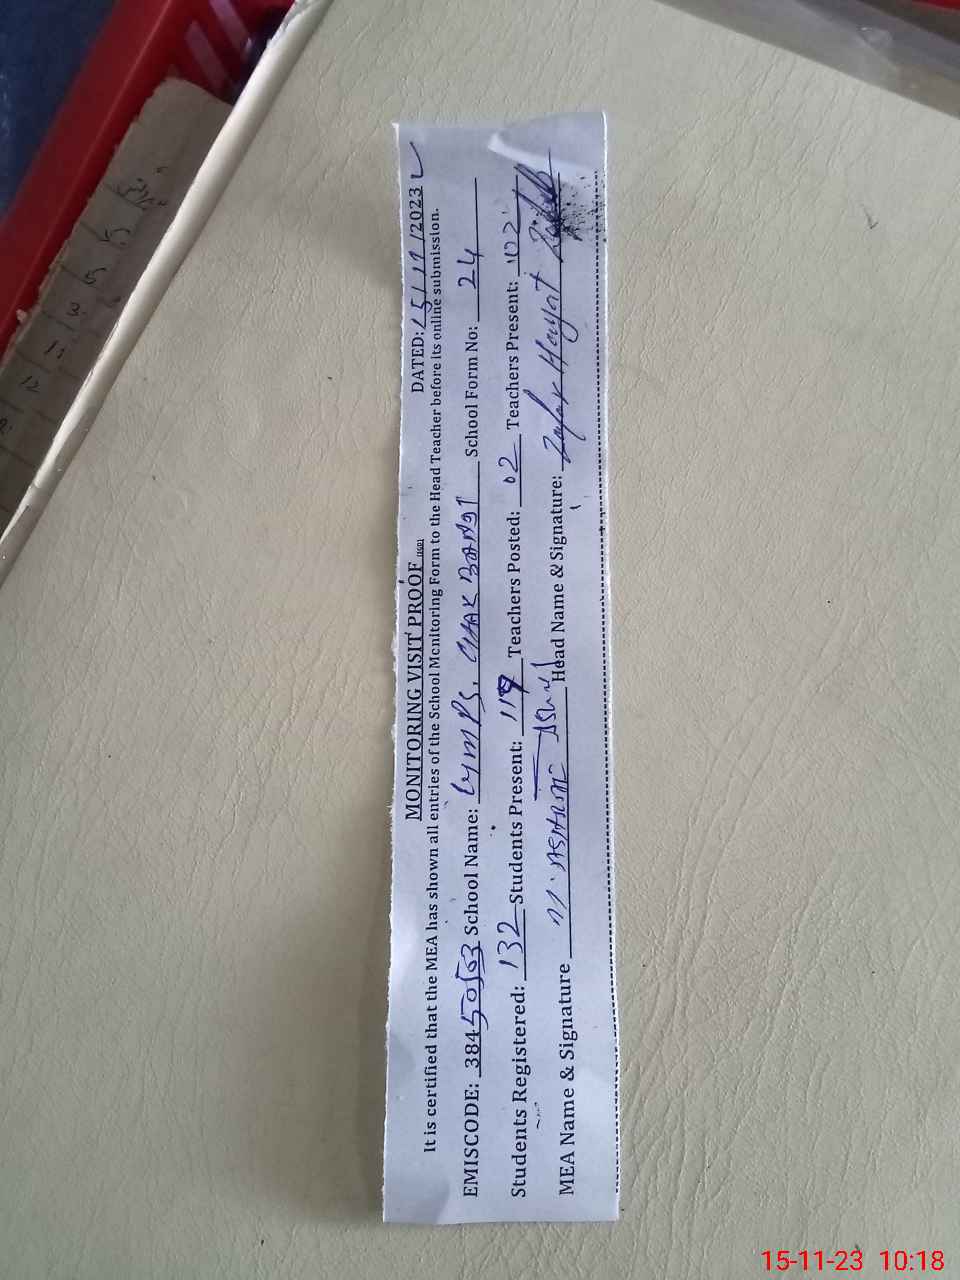 MONITORING VISIT PROOF DATED: 15/11/2023
It is certified that the MEA has shown all entries of the School Monitoring Form to the Head Teacher before its online submission.
EMISCODE: 38450563 School Name: GMPS, CHAK BANDI School Form No: 24
Students Registered: 132 Students Present: 119 Teachers Posted: 02 Teachers Present: 02
MEA Name & Signature M. ASHRAF Head Name & Signature: Zafar Hayat
12
11
3
5
15-11-23 10:18